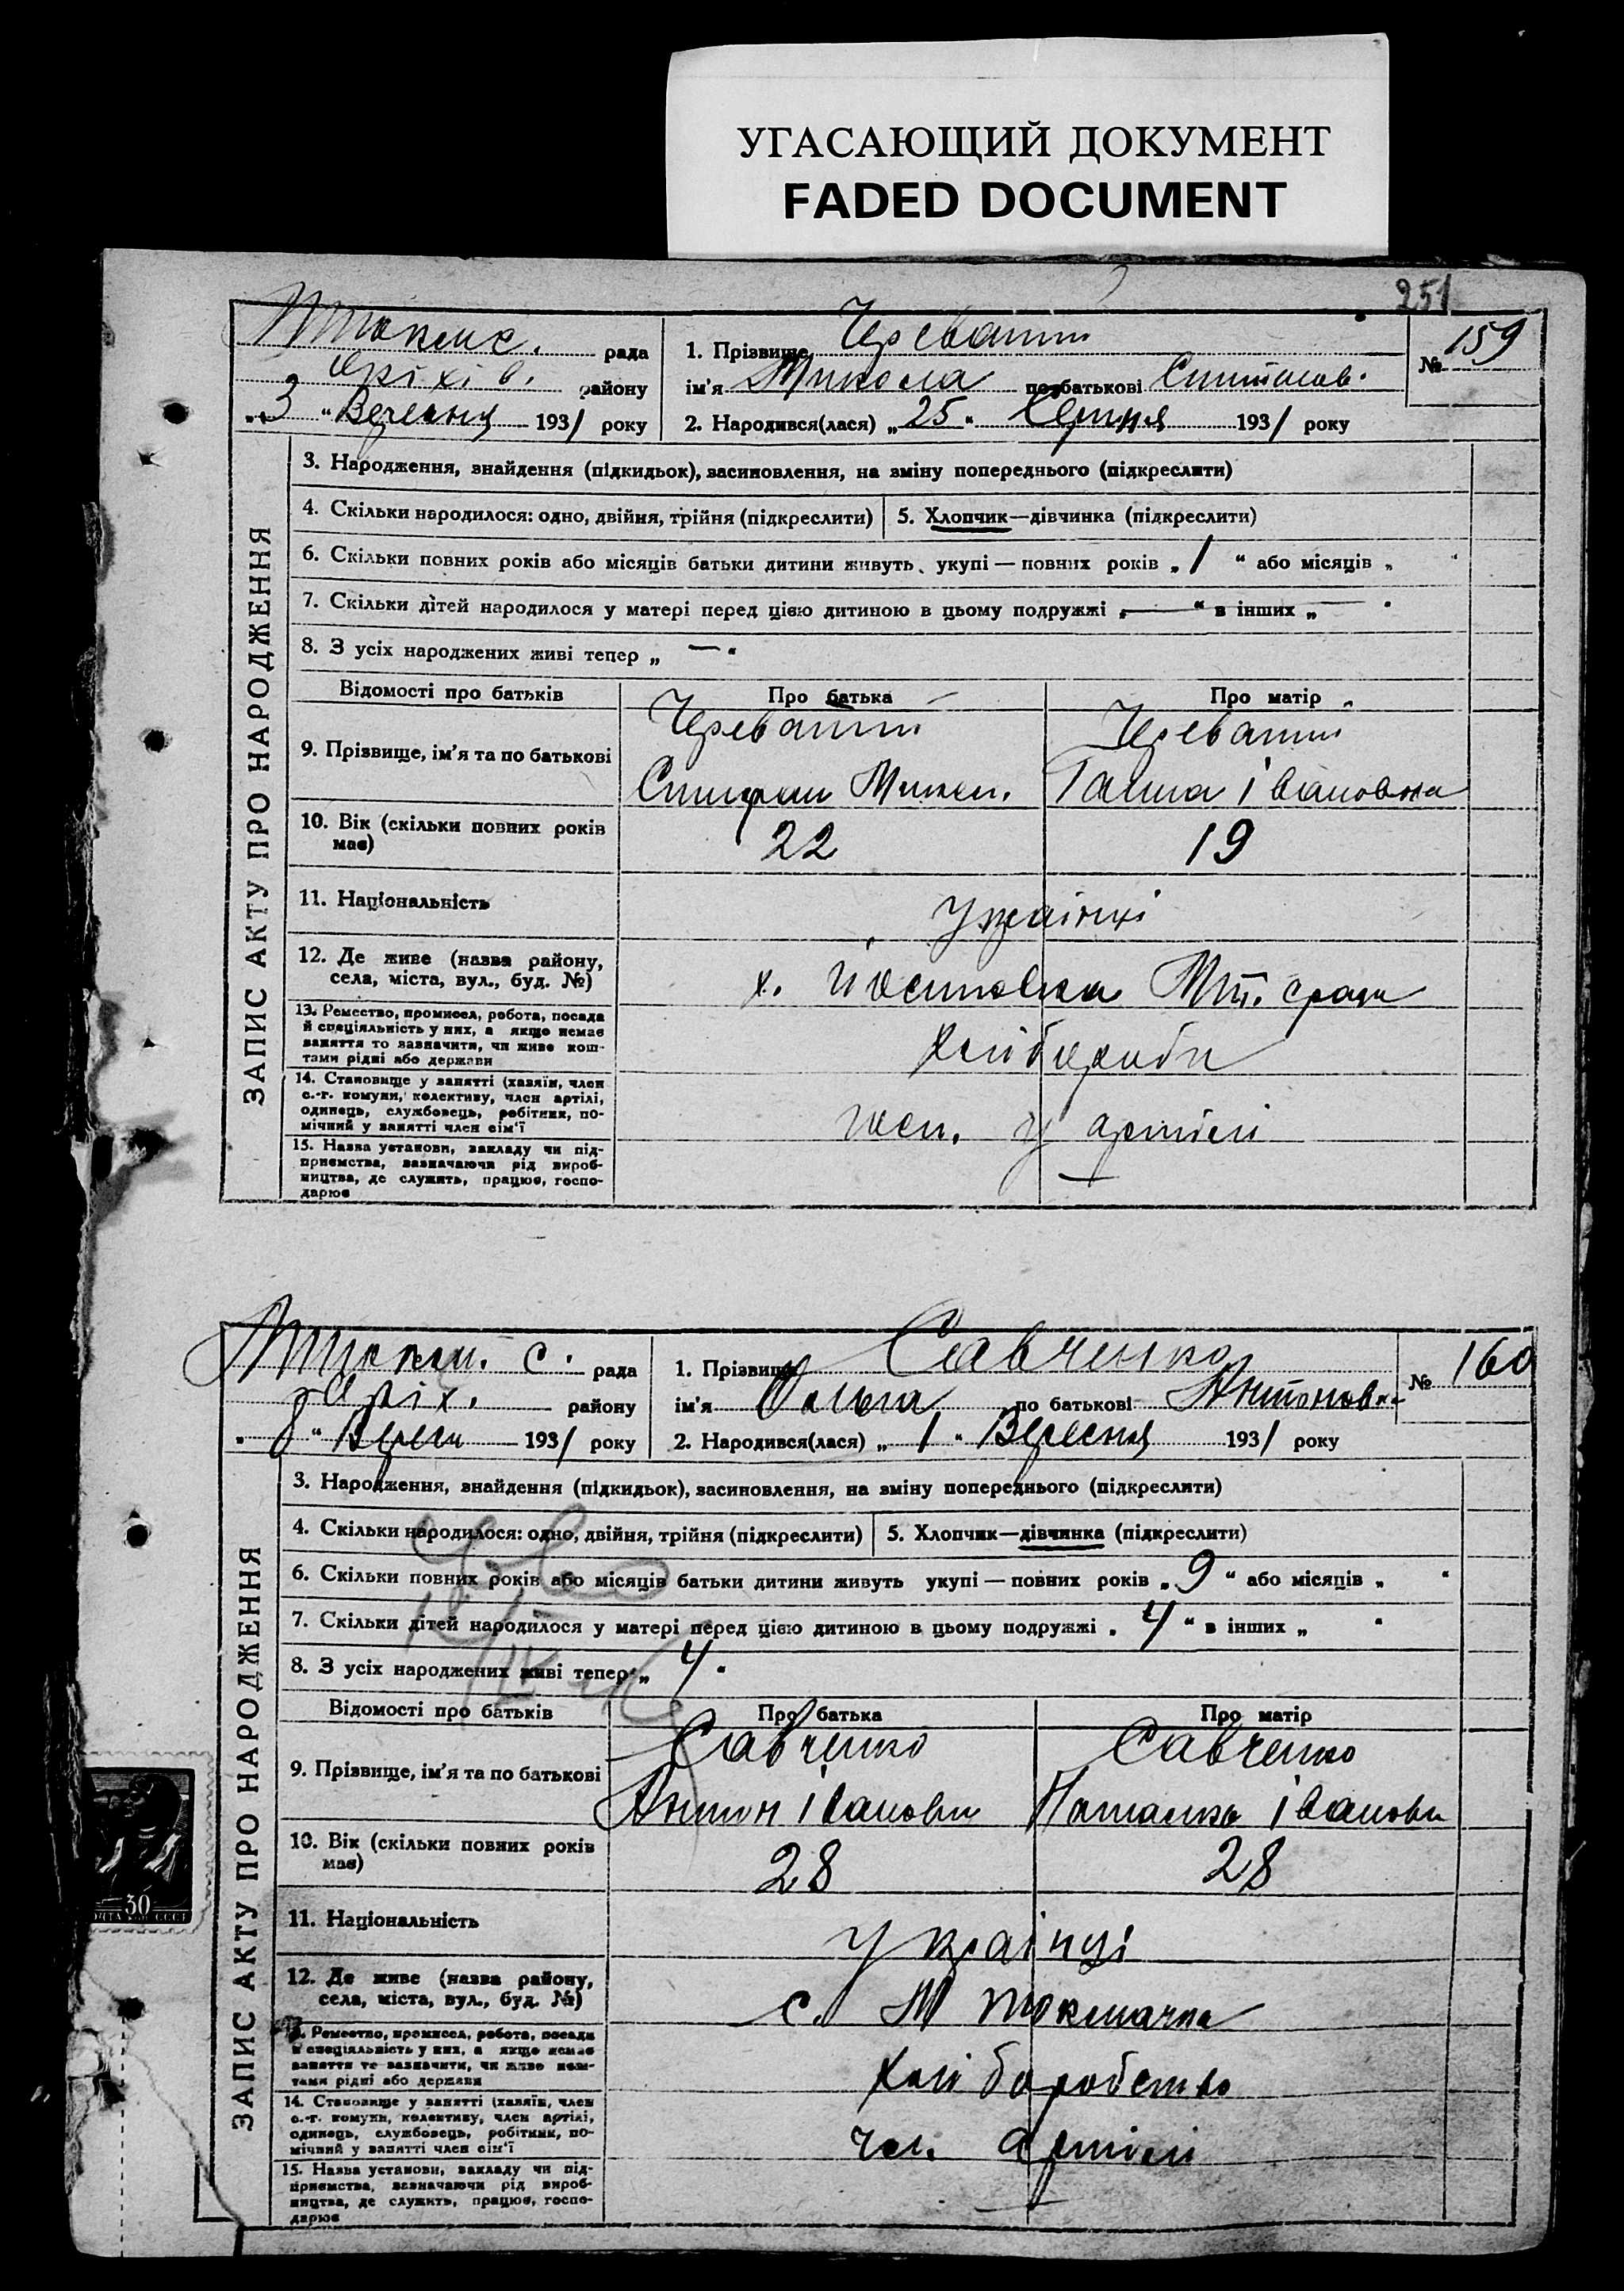 УГАСАЮЩИЙ ДОКУМЕНТ
FADED DOCUMENT
251
рада
Оріхів. району
„3 “ Вересня 1931 року
1. Прізвище Череватий
ім'я Микола по батькові
2. Народився(лася) „25“ Серпня 1931 року
№ 159
ЗАПИС АКТУ ПРО НАРОДЖЕННЯ
3. Народження, знайдення (підкидьок), засиновлення, на зміну попереднього (підкреслити)
4. Скільки народилося: одно, двійня, трійня (підкреслити) 5. Хлопчик—дівчинка (підкреслити)
6. Скільки повних років або місяців батьки дитини живуть укупі — повних років „ 1 “ або місяців „ “
7. Скільки дітей народилося у матері перед цією дитиною в цьому подружжі „ — “ в інших „ — “
8. З усіх народжених живі тепер „ — “
Відомості про батьків Про батька Про матір
9. Прізвище, ім'я та по батькові
Череватий Череватий
Галина Івановна
10. Вік (скільки повних років має) 22 19
11. Національність Українці
12. Де живе (назва району,
села, міста, вул., буд. №)
х.
13. Ремество, промисел, робота, посада
й спеціяльність у них, а якщо немає
заняття то зазначити, чи живе кош-
тами рідні або держави
Хлібороби
14. Становище у занятті (хазяїн, член
с.-г. комуни, колективу, член артілі,
одинець, службовець, робітник, по-
мічний у занятті член сім'ї
у артілі
15. Назва установи, закладу чи під-
приємства, зазначаючи рід вироб-
ництва, де служить, працює, госпо-
дарює
—
с. рада
Оріх. району
„ 8 “ Вересн 1931 року
1. Прізвище Савченко
ім'я Ольга по батькові Антоновна
2. Народився(лася) „ 1 “ Вересня 1931 року
№ 160
ЗАПИС АКТУ ПРО НАРОДЖЕННЯ
3. Народження, знайдення (підкидьок), засиновлення, на зміну попереднього (підкреслити)
4. Скільки народилося: одно, двійня, трійня (підкреслити) 5. Хлопчик—дівчинка (підкреслити)
6. Скільки повних років або місяців батьки дитини живуть укупі — повних років „ 9 “ або місяців „ “
7. Скільки дітей народилося у матері перед цією дитиною в цьому подружжі „ 4 “ в інших „ “
8. З усіх народжених живі тепер „ 4 “
Відомості про батьків Про батька Про матір
9. Прізвище, ім'я та по батькові
Савченко Савченко
Антон Іванови Наталка Іванови
10. Вік (скільки повних років має) 28 28
11. Національність Українці
12. Де живе (назва району,
села, міста, вул., буд. №)
с. М Токмачка
13. Ремество, промисел, робота, посада
й спеціяльність у них, а якщо немає
заняття то зазначити, чи живе кош-
тами рідні або держави
Хліборобство
14. Становище у занятті (хазяїн, член
с.-г. комуни, колективу, член артілі,
одинець, службовець, робітник, по-
мічний у занятті член сім'ї
чл. артілі
15. Назва установи, закладу чи під-
приємства, зазначаючи рід вироб-
ництва, де служить, працює, госпо-
дарює
—
30